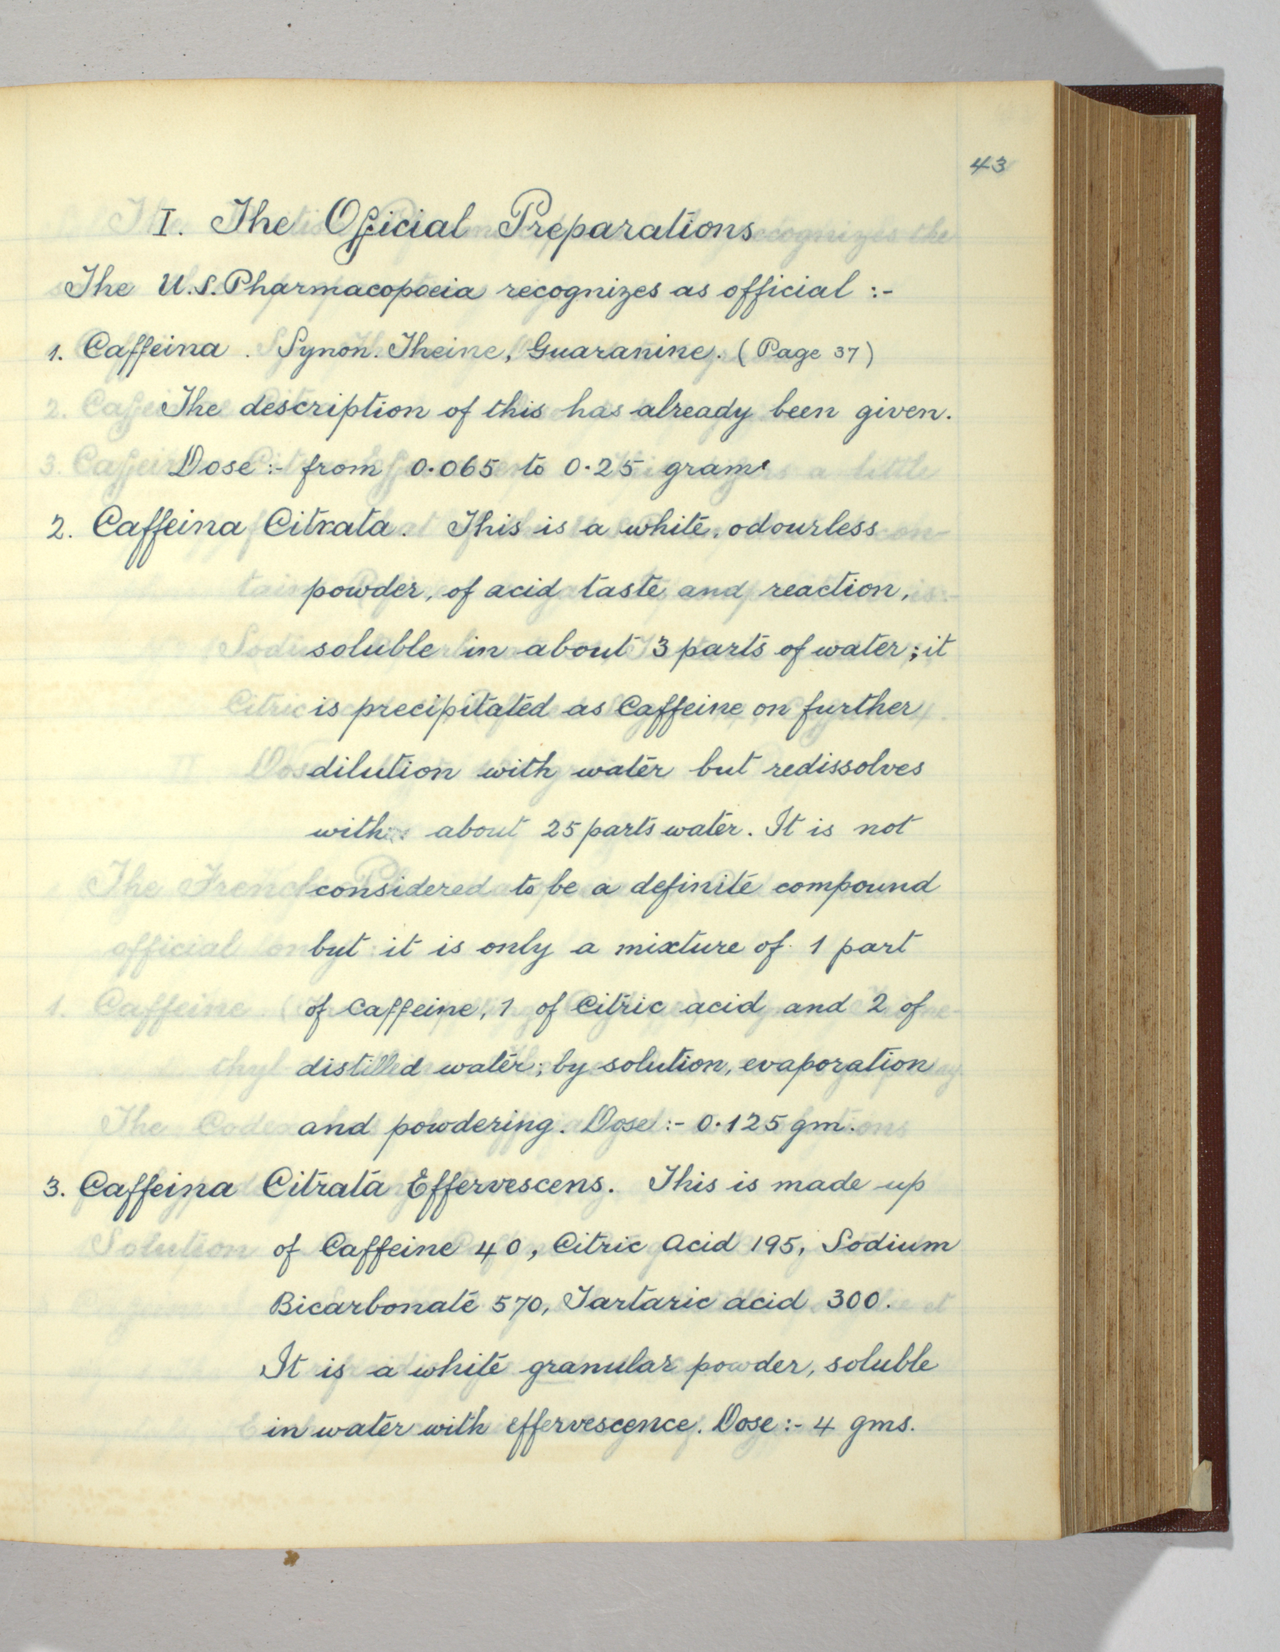 43
I. The Official Preparations
The U.S. Pharmacopoeia recognizes as official :-
1. Caffeina. Synon. Theine, Guaranine. (Page 37)
The description of this has already been given.
Dose :- from 0.065 to 0.25 grams
2. Caffeina Citrata. This is a white, odourless
powder, of acid taste and reaction,
soluble in about 3 parts of water; it
is precipitated as Caffeine on further
dilution with water but redissolves
with about 25 parts water. It is not
considered to be a definite compound
but it is only a mixture of 1 part
of Caffeine, 1 of Citric acid and 2 of
distilled water; by solution, evaporation
and powdering. Dose :- 0.125 gm.
3. Caffeina Citrata Effervescens. This is made up
of Caffeine 40, Citric Acid 195, Sodium
Bicarbonate 570, Tartaric acid 300.
It is a white granular powder, soluble
in water with effervescence. Dose :- 4 gms.